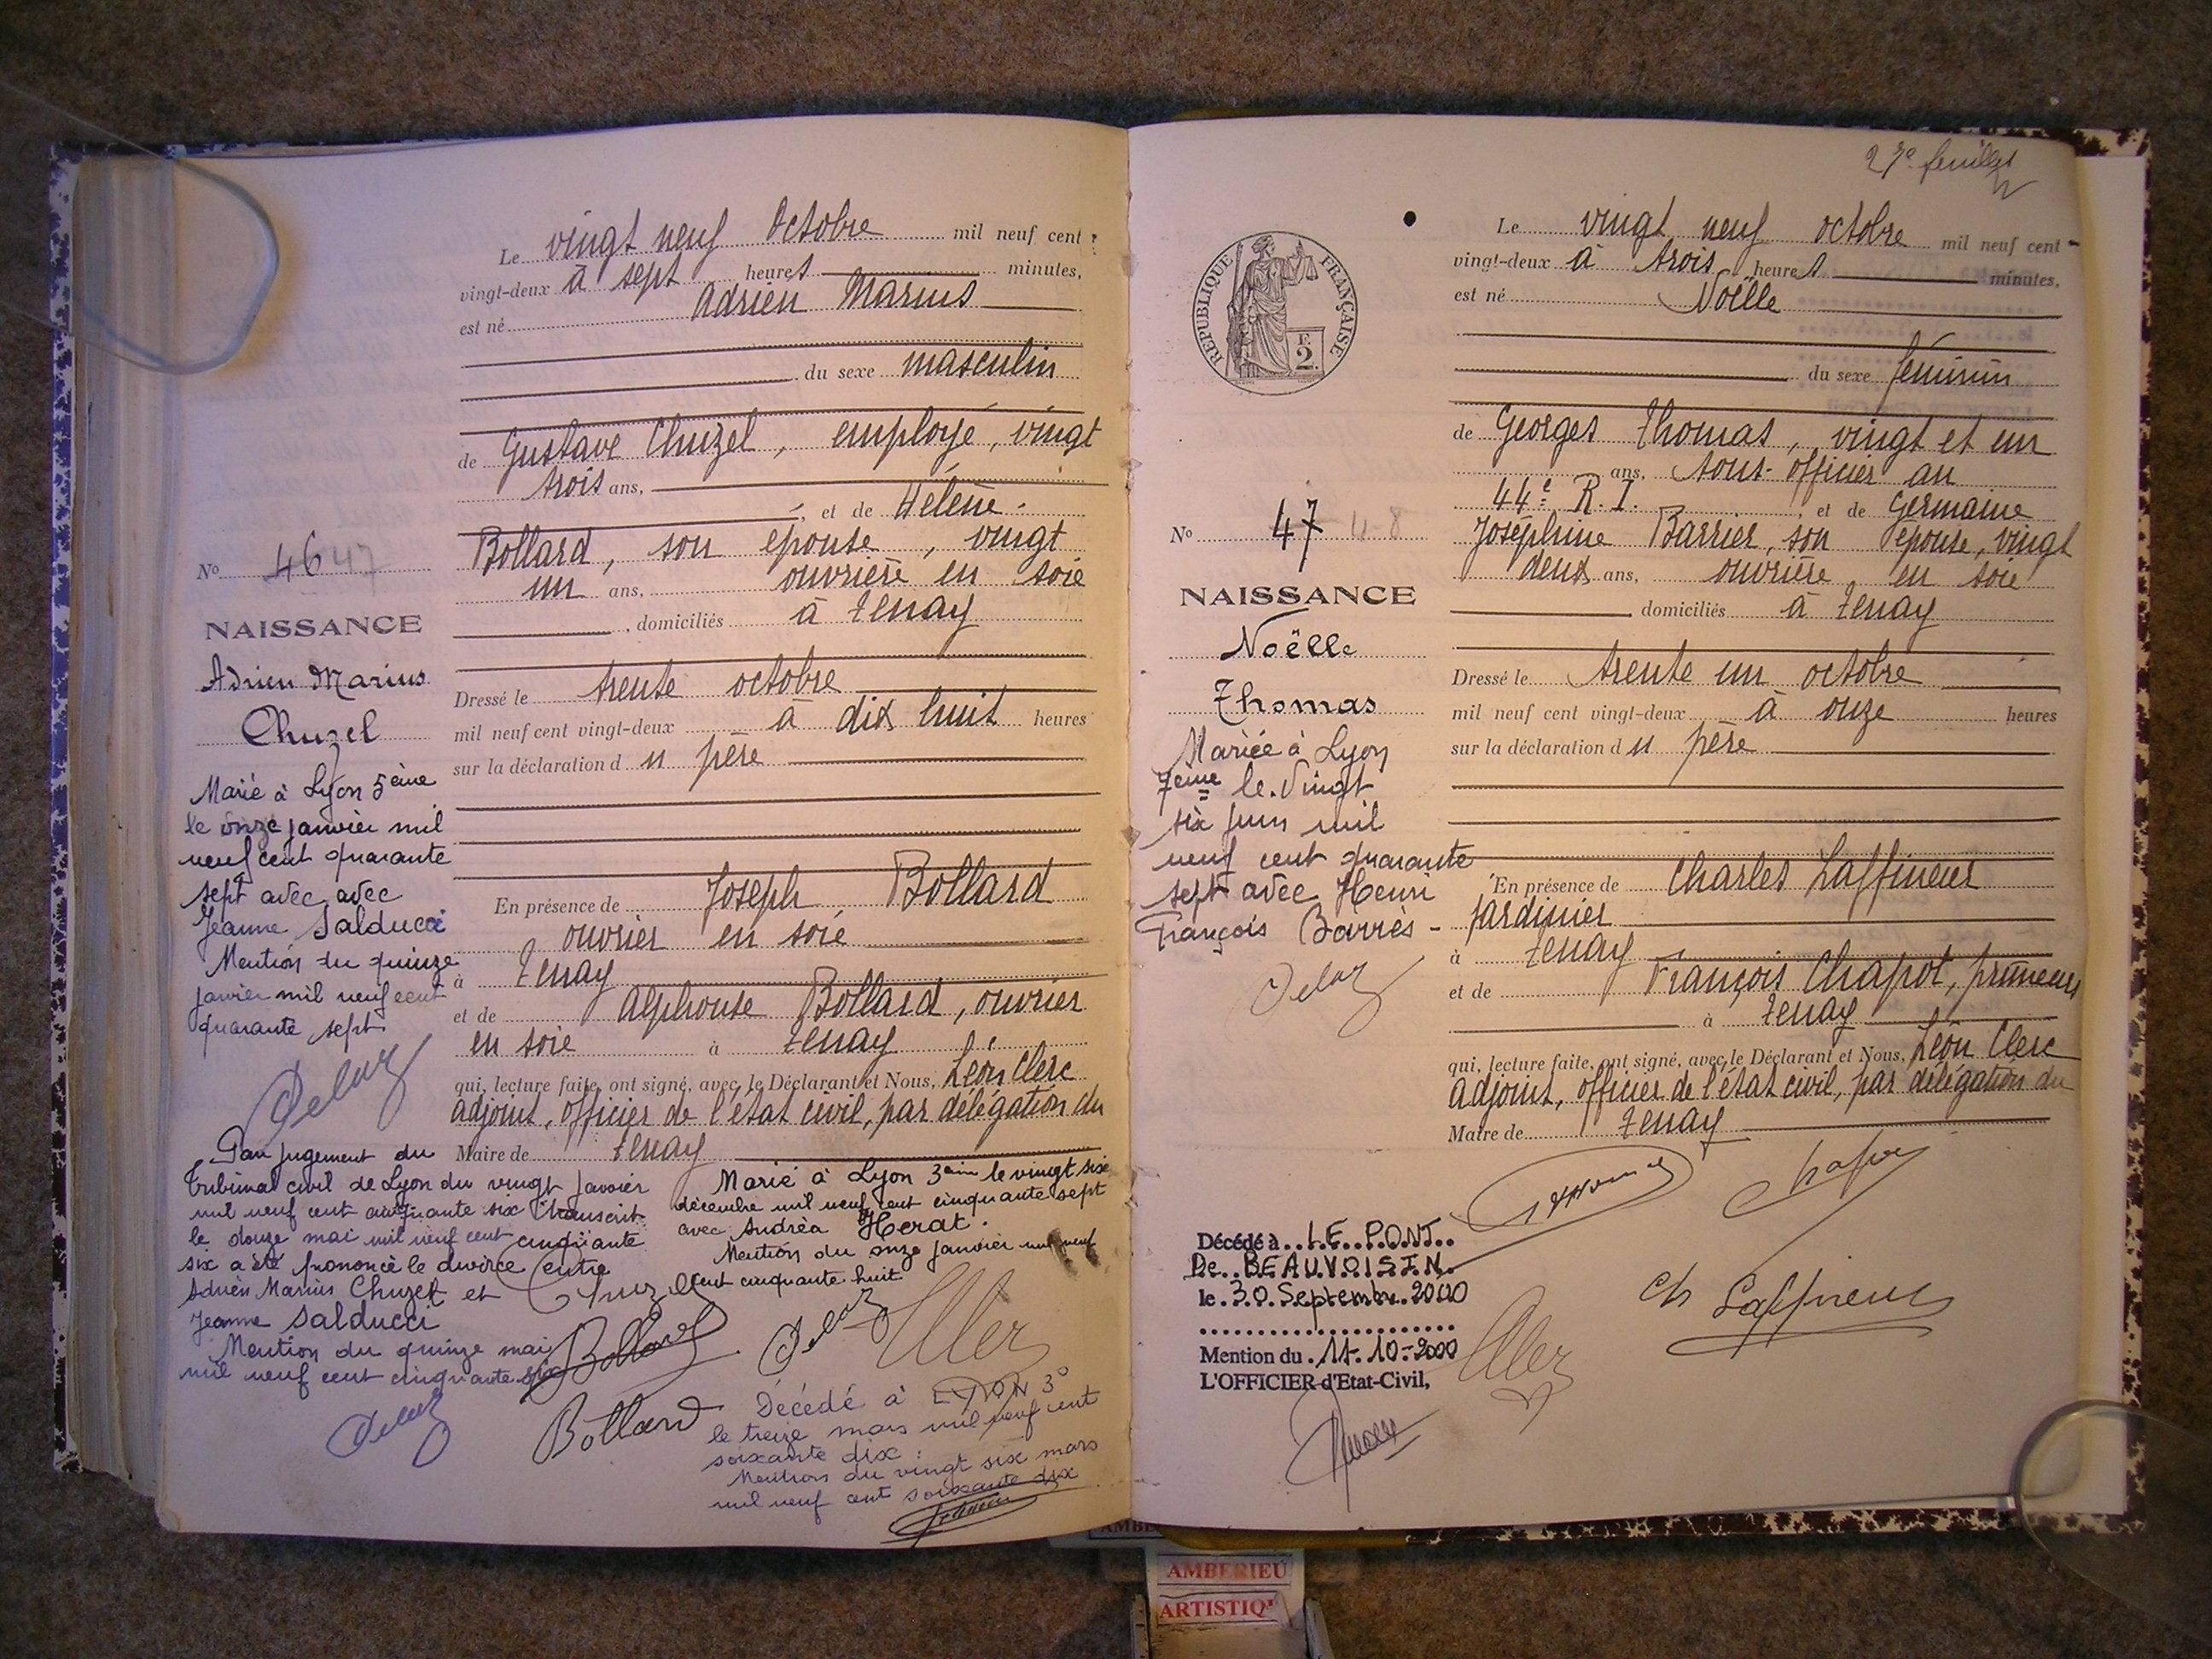 Le vingt neuf Octobre mil neuf cent
vingt-deux à sept heures minutes,
est né Adrien Marius
du sexe masculin
de Gustave Chuzel, employé, vingt
trois ans,
et de Hélène
Bollard, son épouse, vingt
un ans, ouvrière en soie
domiciliés à Tenay
Dressé le trente octobre
mil neuf cent vingt-deux à dix huit heures
sur la déclaration du père
En présence de Joseph Bollard
ouvrier en soie
à Tenay
et de Alphonse Bollard, ouvrier
en soie à Tenay
qui, lecture faite, ont signé, avec le Déclarant et Nous, Léon Clerc
adjoint, officier de l'état civil, par délégation du
Maire de Tenay
No 46 47
NAISSANCE
Adrien Marius
Chuzel
Marié à Lyon 5ème
le onze janvier mil
neuf cent quarante
sept avec avec
Jeanne Salducci
Mention du quinze
janvier mil neuf cent
quarante sept
Par jugement du
Tribunal civil de Lyon du vingt janvier
mil neuf cent cinquante six transcrit
le douze mai mil neuf cent cinquante
six a été prononcé le divorce entre
Adrien Marius Chuzel et
Jeanne Salducci
Mention du quinze mai
mil neuf cent cinquante six
Marié à Lyon 3ème le vingt six
décembre mil neuf cent cinquante sept
avec Andréa Herat.
Mention du onze janvier mil neuf
cent cinquante huit
Chuzel
Bollard
Bollard
Décédé à LYON 3°
le treize mars mil neuf cent
soixante dix :
Mention du vingt six mars
mil neuf cent soixante dix
27e feuillet
RÉPUBLIQUE FRANÇAISE
F.
2.
Le vingt neuf octobre mil neuf cent
vingt-deux à trois heures minutes,
est né Noëlle
du sexe féminin
de Georges Thomas, vingt et un
ans, sous-officier au
44e R.I. et de Germaine
Joséphine Barrier, son épouse, vingt
deux ans, ouvrière en soie
domiciliés à Tenay
Dressé le trente un octobre
mil neuf cent vingt-deux à onze heures
sur la déclaration du père
En présence de Charles Laffineur
jardinier
à Tenay
et de François Chapot, primeurs
à Tenay
qui, lecture faite, ont signé, avec le Déclarant et Nous, Léon Clerc
adjoint, officier de l'état civil, par délégation du
Maire de Tenay
No 47 48
NAISSANCE
Noëlle
Thomas
Mariée à Lyon
7ème le Vingt
six juin mil
neuf cent quarante
sept avec Henri
François Barrès -
Décédé à LE PONT
De BEAUVOISIN
le 30 Septembre 2000
Mention du 11-10-2000
L'OFFICIER d'Etat-Civil,
Ch Laffineur
AMBERIEU
ARTISTIQ